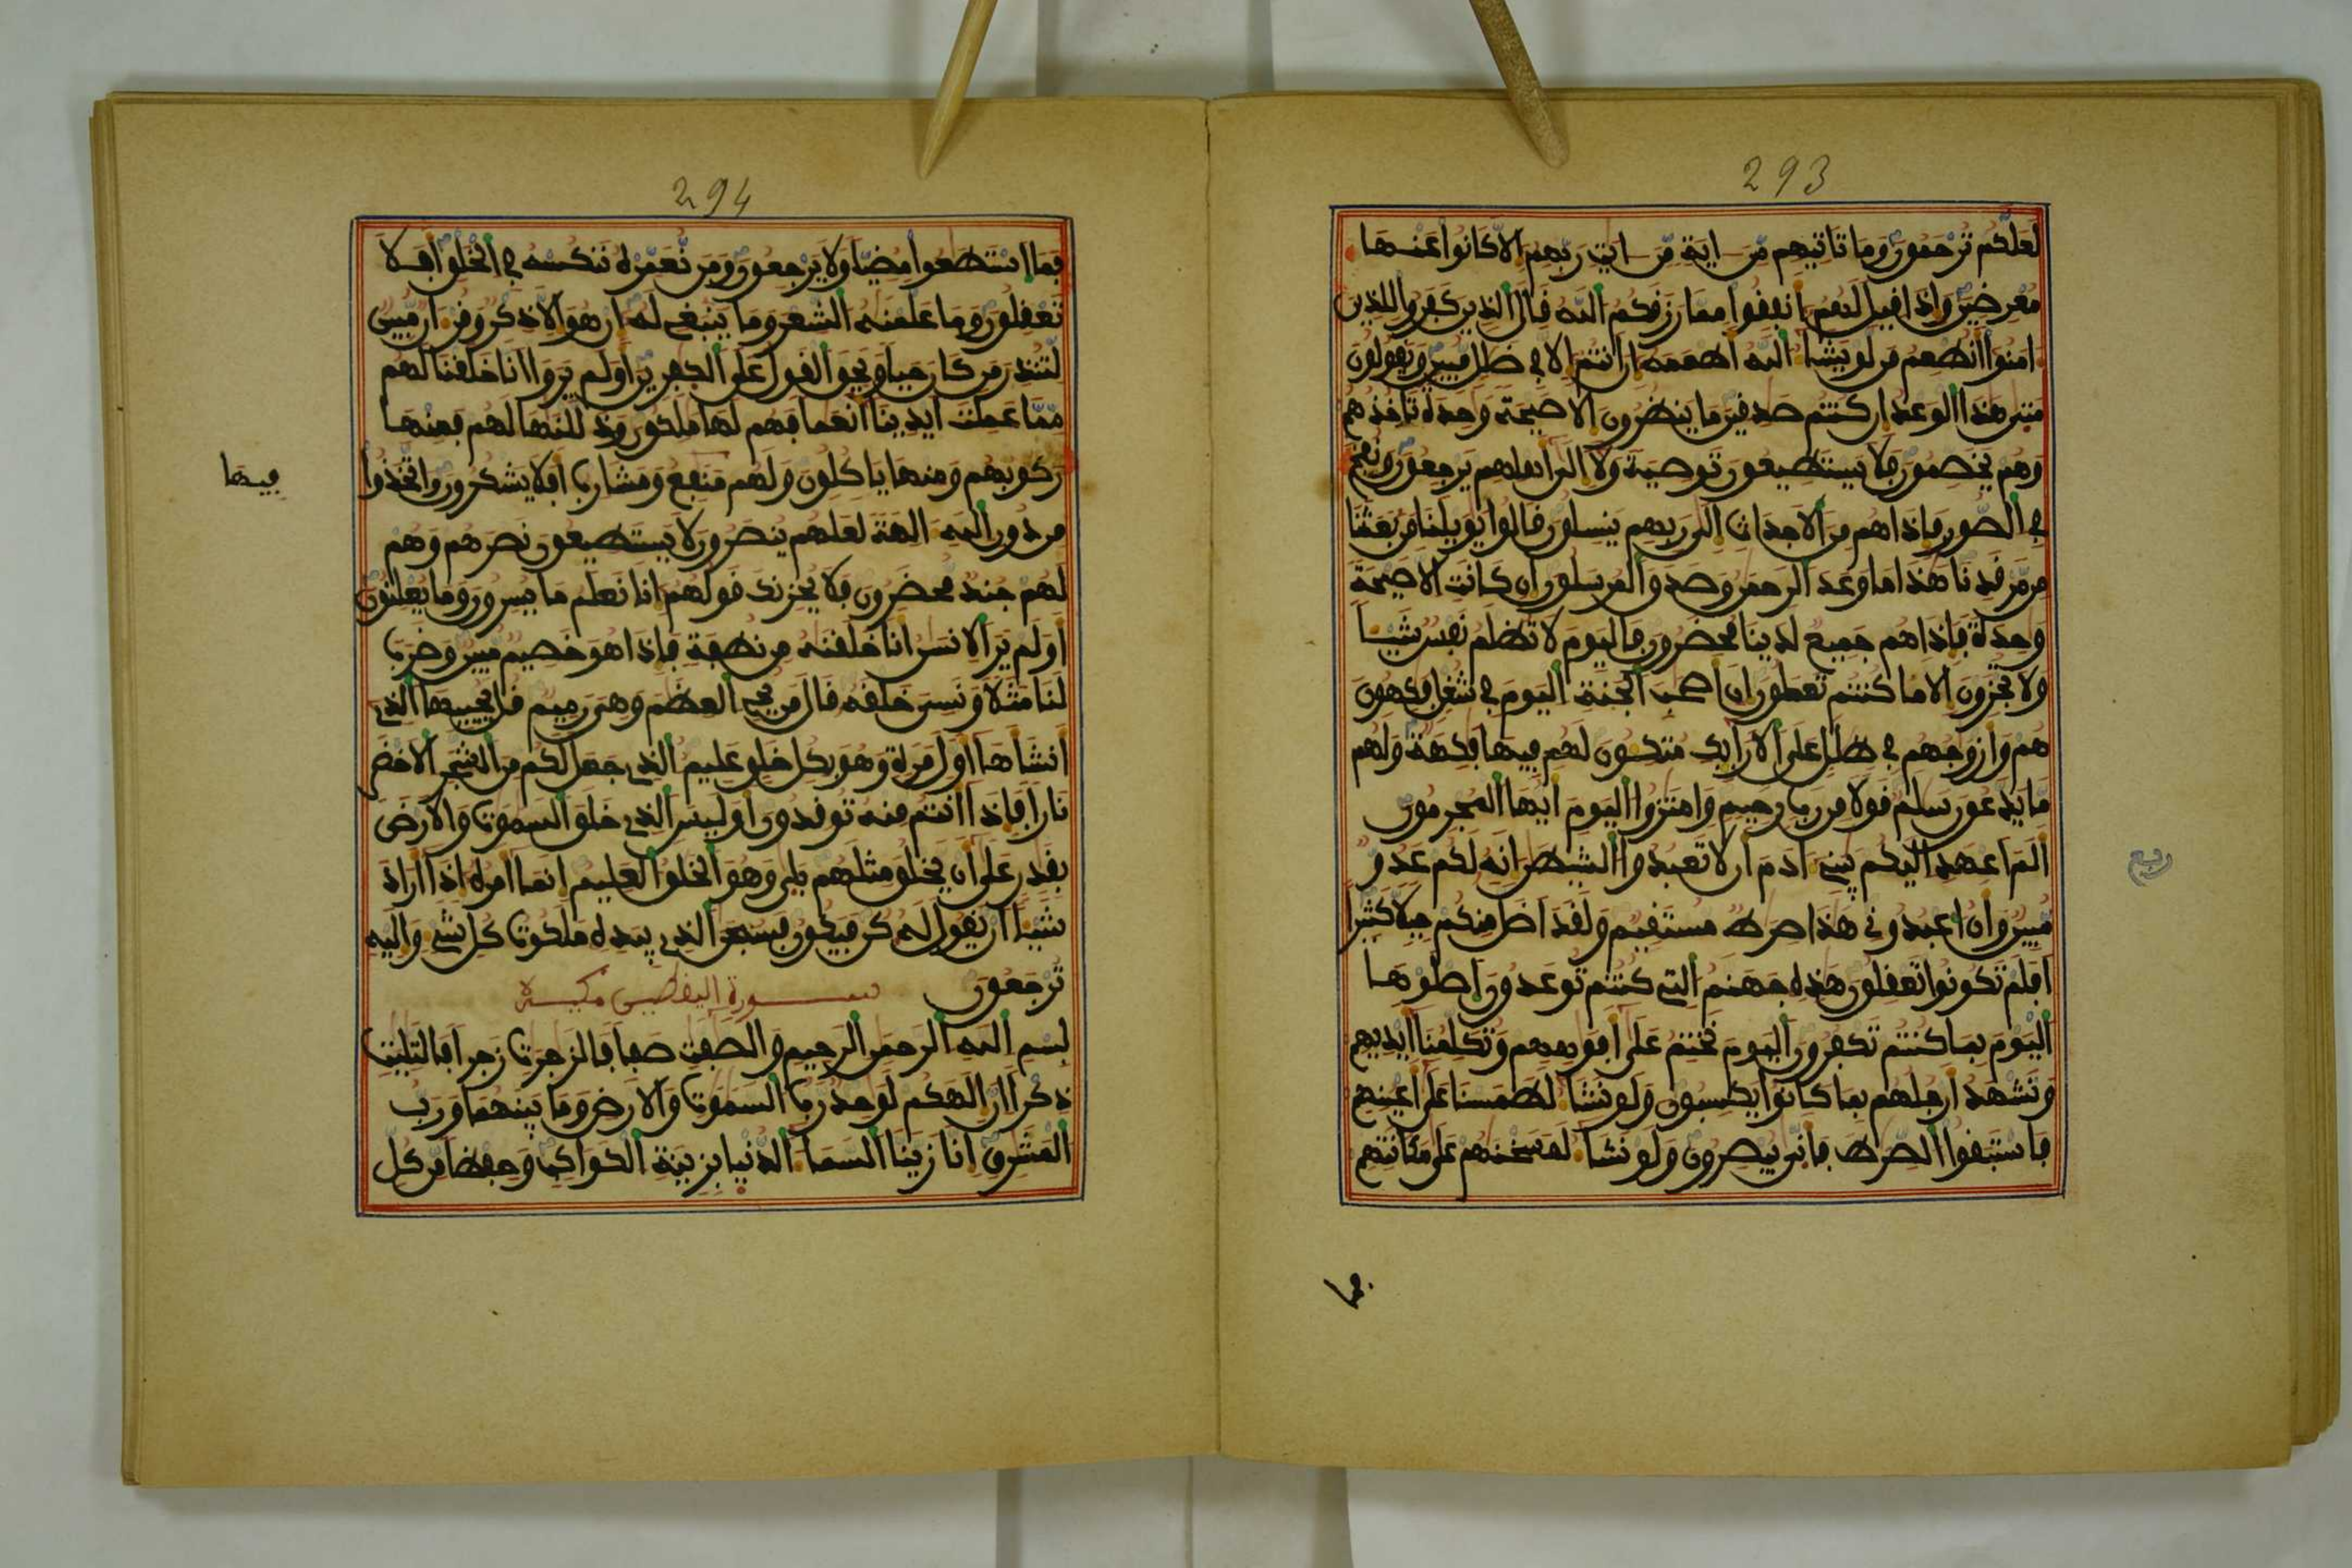 293
لعلكم ترحمون وما تاتيهم من اية من ايت ربهم الا كانوا عنها
معرضين واذا فيل لهم انففوا مما رزفكم الله فال الذين كفروا للذين
امنوا انطعم من لو يشا الله اطعمه ان انتم الا في ضلل مبين ويفولون
متى هذا الوعد ان كنتم صدفين ما ينظرون الا صيحة وحدة تاخذهم
وهم يخصمون فلا يستطيعون توصية ولا الى اهلهم يرجعون ونفخ
في الصور فاذا هم من الاجداث الى ربهم ينسلون فالوا يويلنا من بعثنا
من مرفدنا هذا ما وعد الرحمن وصدو المرسلون ان كانت الا صيحة
وحدة فاذا هم جميع لدينا محضرون فاليوم لا تظلم نفس شيا
ولا تجزون الا ما كنتم تعملون ان اصحب الجنة اليوم في شغل فكهون
هم وازوجهم في ظلل على الارايك متكون لهم فيها فكهة ولهم
ما يدعون سلم فولا من رب رحيم وامتزوا اليوم ايها المجرمون
الم اعهد اليكم يبني ادم ان لا تعبدوا الشيطن انه لكم عدو
ربع
مبين وان اعبدوني هذا صرط مستفيم ولفد اضل منكم جبلا كثيرا
افلم تكونوا تعفلون هذه جهنم التي كنتم توعدون اصلوها
اليوم بما كنتم تكفرون اليوم نختم على افوههم وتكلمنا ايديهم
وتشهد ارجلهم بما كانوا يكسبون ولو نشا لطمسنا على اعينهم
فاستبفوا الصرط فانى يبصرون ولو نشا لمسخنهم على مكانتهم
فما
294
فما استطعوا مضيا ولا يرجعون ومن نعمره ننكسه في الخلو افلا
تعفلون وما علمنه الشعر وما ينبغي له ان هو الا ذكر وفرءان مبين
لتنذر من كان حيا ويحو الفول على الكفرين اولم يروا انا خلفنا لهم
مما عملت ايدينا انعما فهم لها ملكون وذللنها لهم فمنها
ركوبهم ومنها ياكلون ولهم منفع ومشارب افلا يشكرون واتخذوا
فيها
من دون الله الهة لعلهم ينصرون لا يستطيعون نصرهم وهم
لهم جند محضرون فلا يحزنك فولهم انا نعلم ما يسرون وما يعلنون
اولم ير الانسن انا خلفنه من نطفة فاذا هو خصيم مبين وضرب
لنا مثلا ونسي خلفه فال من يحي العظم وهي رميم فل يحييها الذي
انشاها اول مرة وهو بكل خلو عليم الذي جعل لكم من الشجر الاخضر
نارا فاذا انتم منه توفدون اوليس الذي خلو السموت والارض
بفدر على ان يخلو مثلهم بلى وهو الخلو العليم انما امره اذا اراد
شيا ان يفول له كن فيكون فسبحن الذي بيده ملكوت كل شي واليه
ترجعون سورة اليفطين مكية
بسم الله الرحمن الرحيم والصفت صفا فالزجرت زجرا فالتليت
ذكرا ان الهكم لوحد رب السموت والارض وما بينهما ورب
المشرو انا زينا السما الدنيا بزينة الكواكب وحفظا من كل